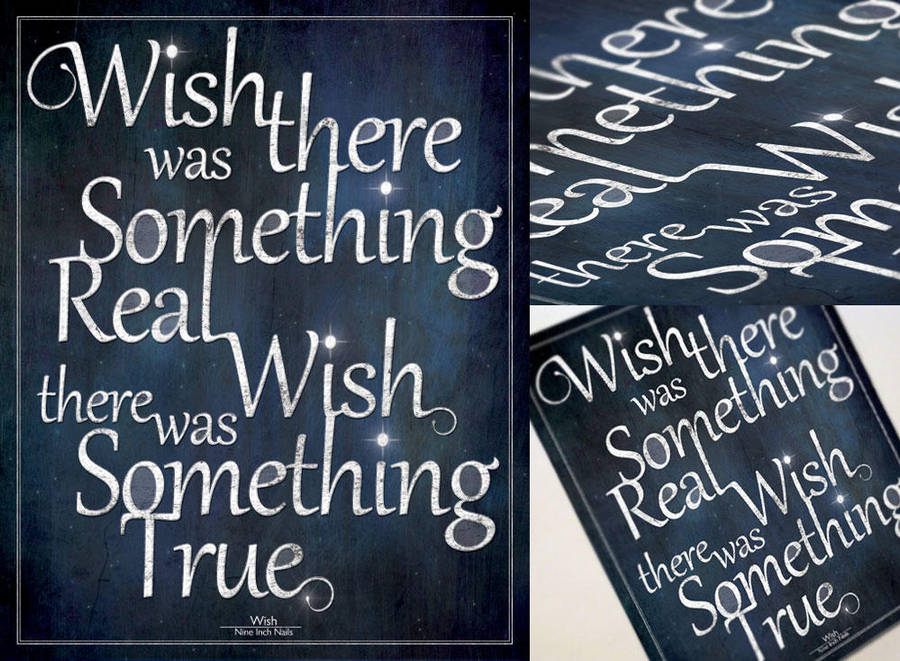 Wish there
was
Something
Real Wish
there was
Something
True
Wish
Nine Inch Nails
here
mething
eal Wis
there was
Som
Wish there
was
Something
Real Wish
there was
Something
True
Wish
Nine Inch Nails